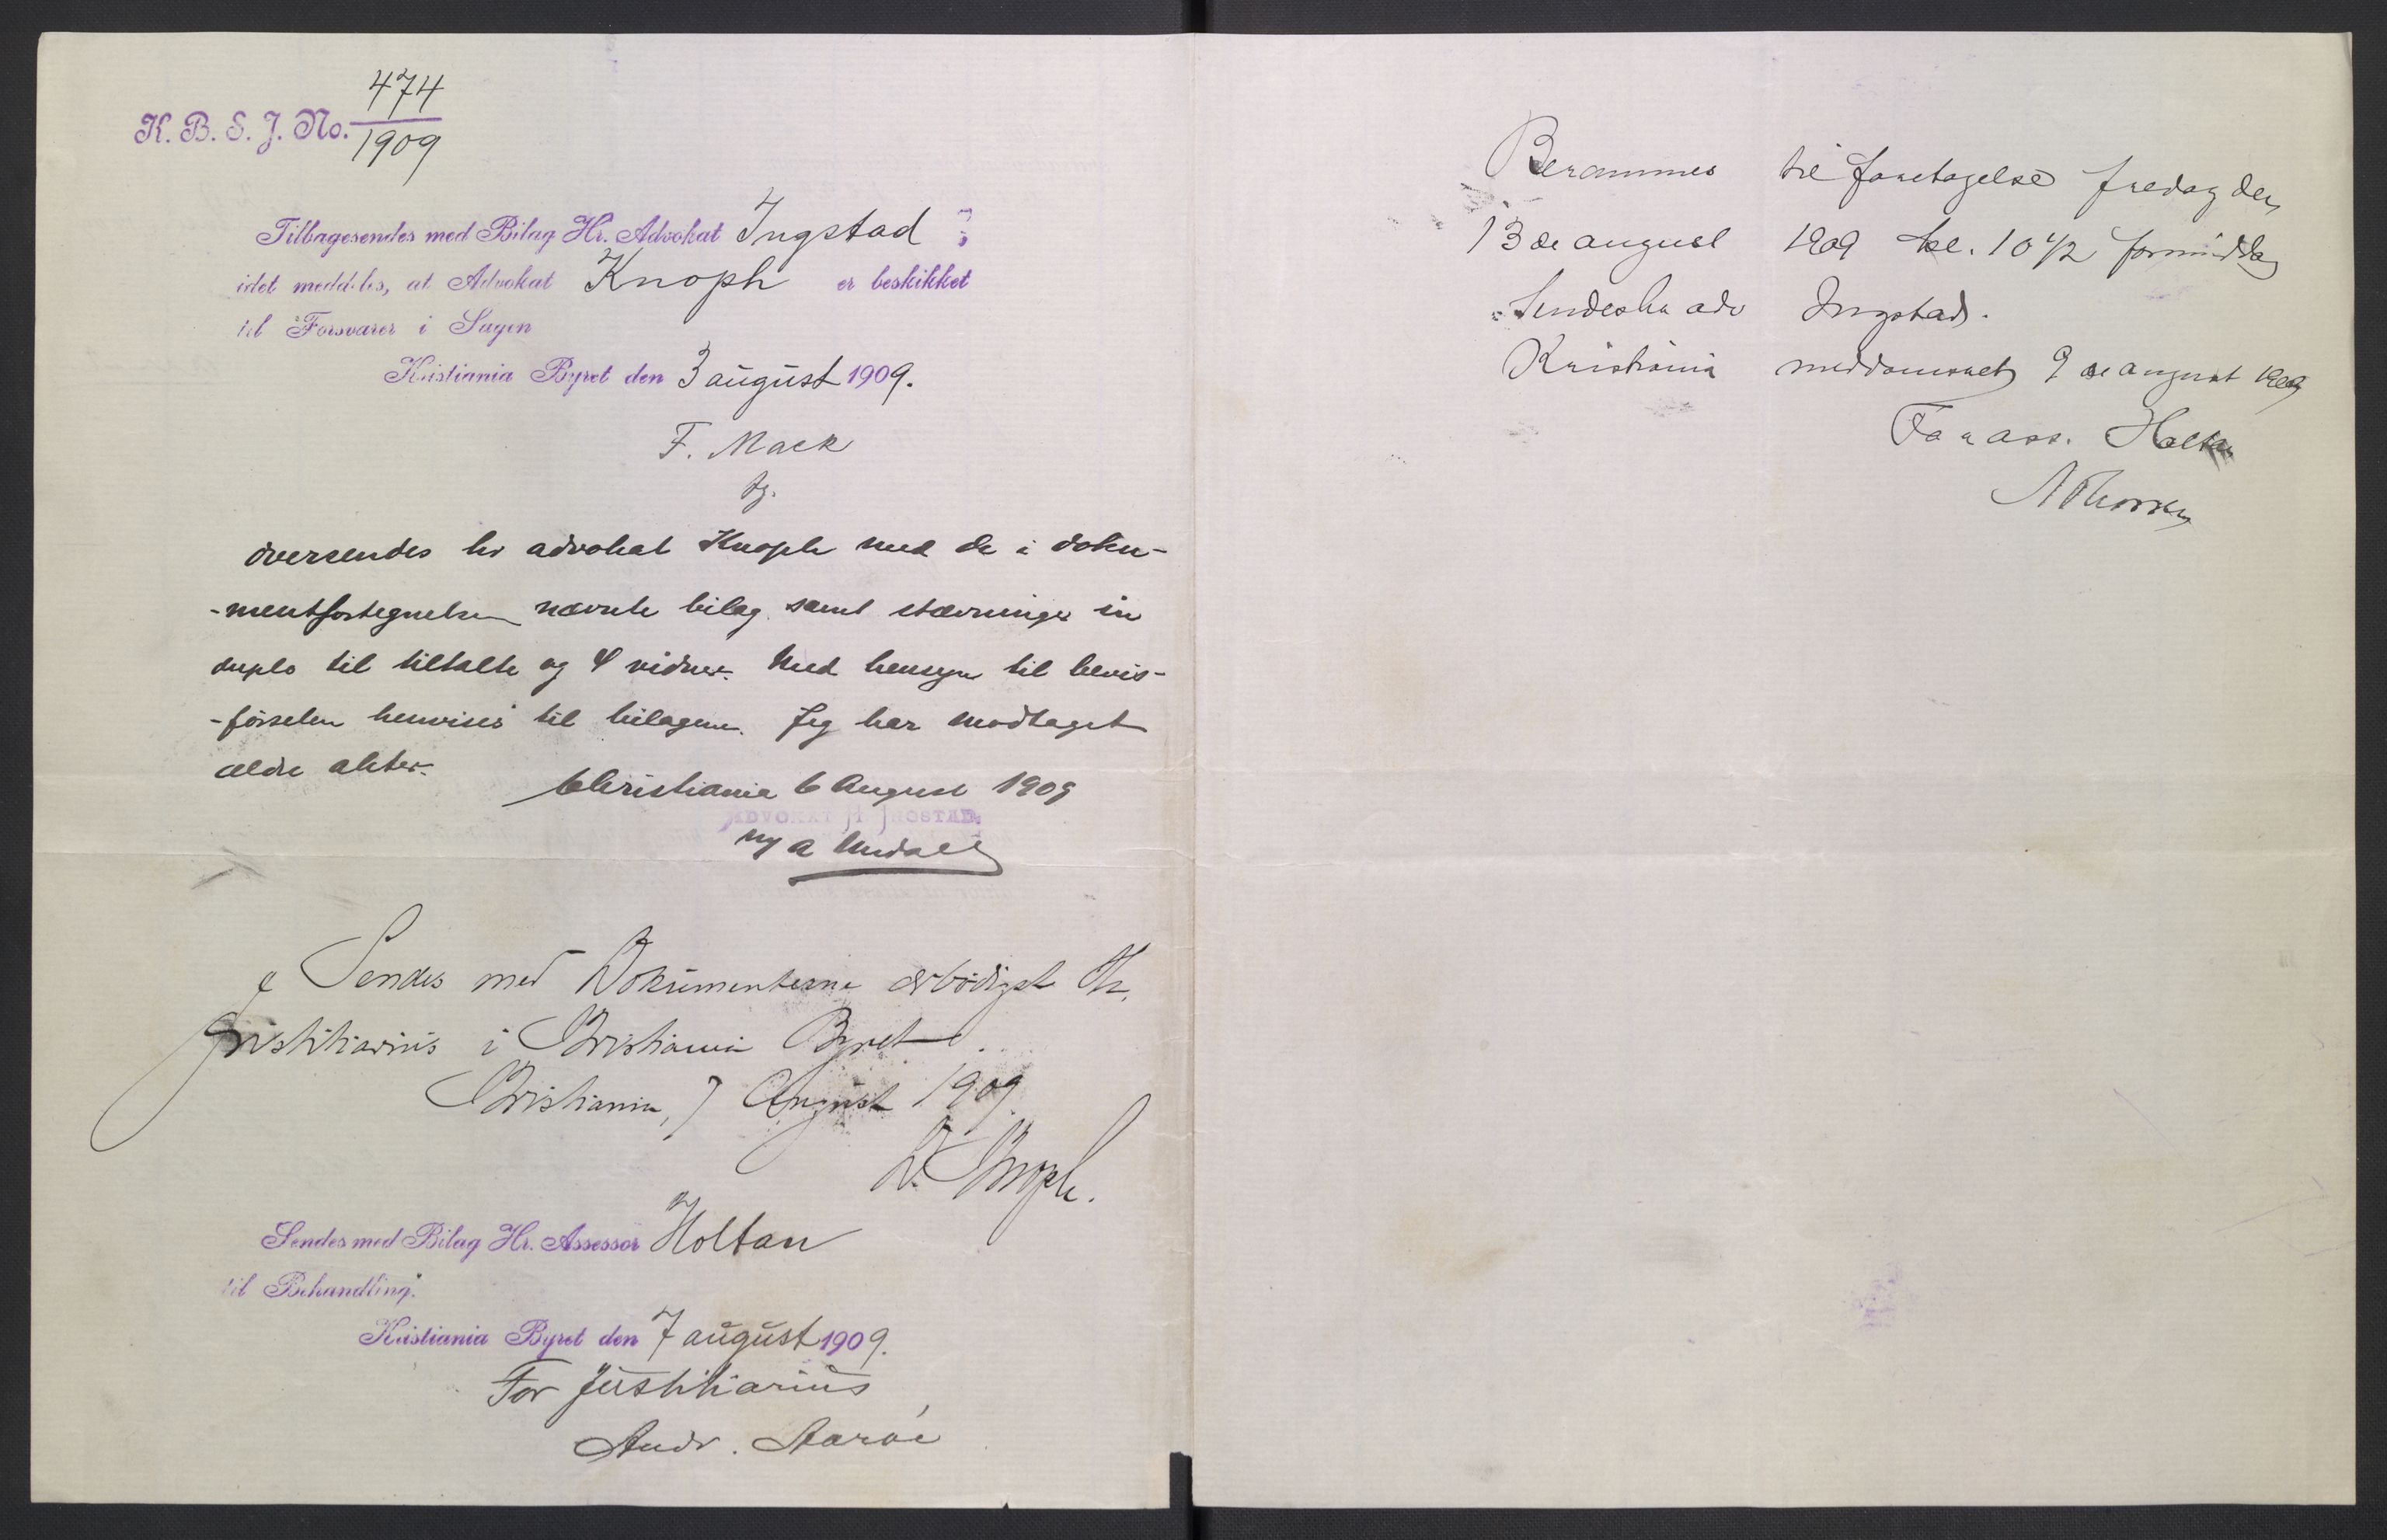 474
K. B. S. J. No.
1909
Tilbagesendes med Bilag Hr. Advokat Ingstad,
idet meddeles, at Advokat Knoph er beskikket
til Forsvarer i Sagen
Kristiania Byret den 3 august 1909.
F. Mack
fg.
Oversendes hr advokat Knoph med de i doku-
-mentfortegnelsen nævnte bilag samt stævninger in
duplo til tiltalte og 4 vidner. Med hensyn til bevis-
-førselen henvises til bilagene. Jeg har modtaget
ældre akter.
Christiania 6 August 1909
ADVOKAT INGSTAD.
Sendes med Dokumenterne ærbødigst Hr.
Justitiarius i Kristiania Byret.
Kristiania, 7 August 1909
Knoph.
Sendes med Bilag Hr. Assessor Holtan
til Behandling.
Kristiania Byret den 7 august 1909.
For Justitiarius,
Andr. Aarøe
Berammes til foretagelse fredag den
13de august 1909 kl. 10 1/2 formiddag
Sendes hr adv Ingstad.
Kristiania meddomsret 9de august 1909
For ass. Holtan